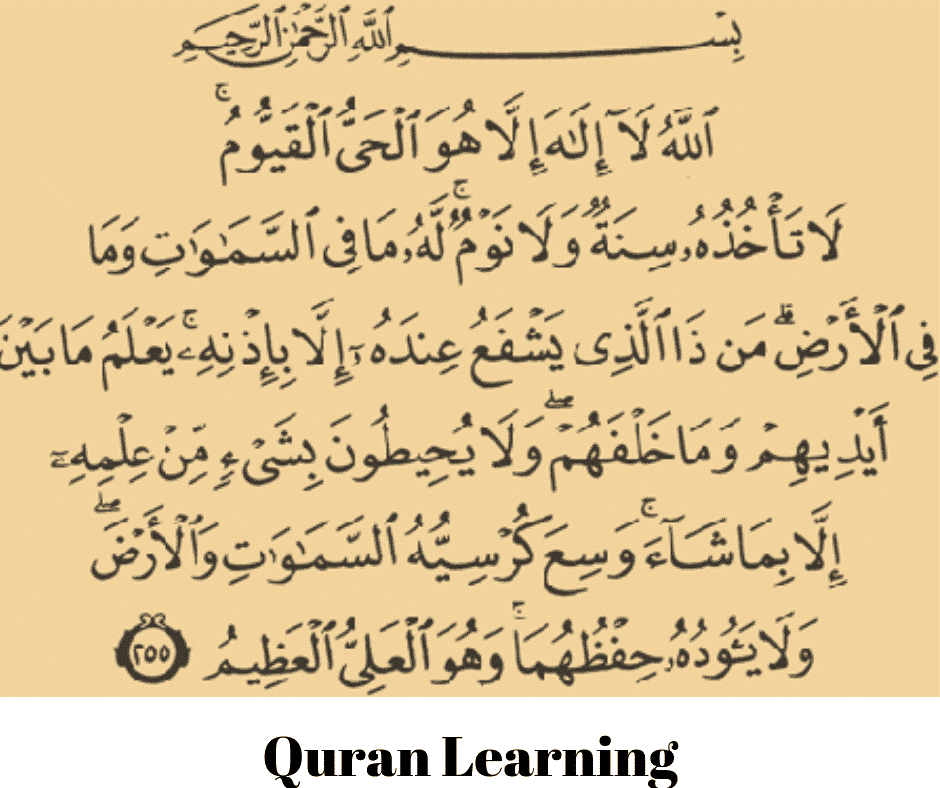 بِسْمِ ٱللَّهِ ٱلرَّحْمَٰنِ ٱلرَّحِيمِ
ٱللَّهُ لَآ إِلَٰهَ إِلَّا هُوَ ٱلْحَىُّ ٱلْقَيُّومُ ۚ
لَا تَأْخُذُهُۥ سِنَةٌ وَلَا نَوْمٌ ۚ لَّهُۥ مَا فِى ٱلسَّمَٰوَٰتِ وَمَا
فِى ٱلْأَرْضِ ۗ مَن ذَا ٱلَّذِى يَشْفَعُ عِندَهُۥٓ إِلَّا بِإِذْنِهِۦ ۚ يَعْلَمُ مَا بَيْنَ
أَيْدِيهِمْ وَمَا خَلْفَهُمْ ۖ وَلَا يُحِيطُونَ بِشَىْءٍ مِّنْ عِلْمِهِۦٓ
إِلَّا بِمَا شَآءَ ۚ وَسِعَ كُرْسِيُّهُ ٱلسَّمَٰوَٰتِ وَٱلْأَرْضَ ۖ
وَلَا يَـُٔودُهُۥ حِفْظُهُمَا ۚ وَهُوَ ٱلْعَلِىُّ ٱلْعَظِيمُ ٢٥٥
Quran Learning